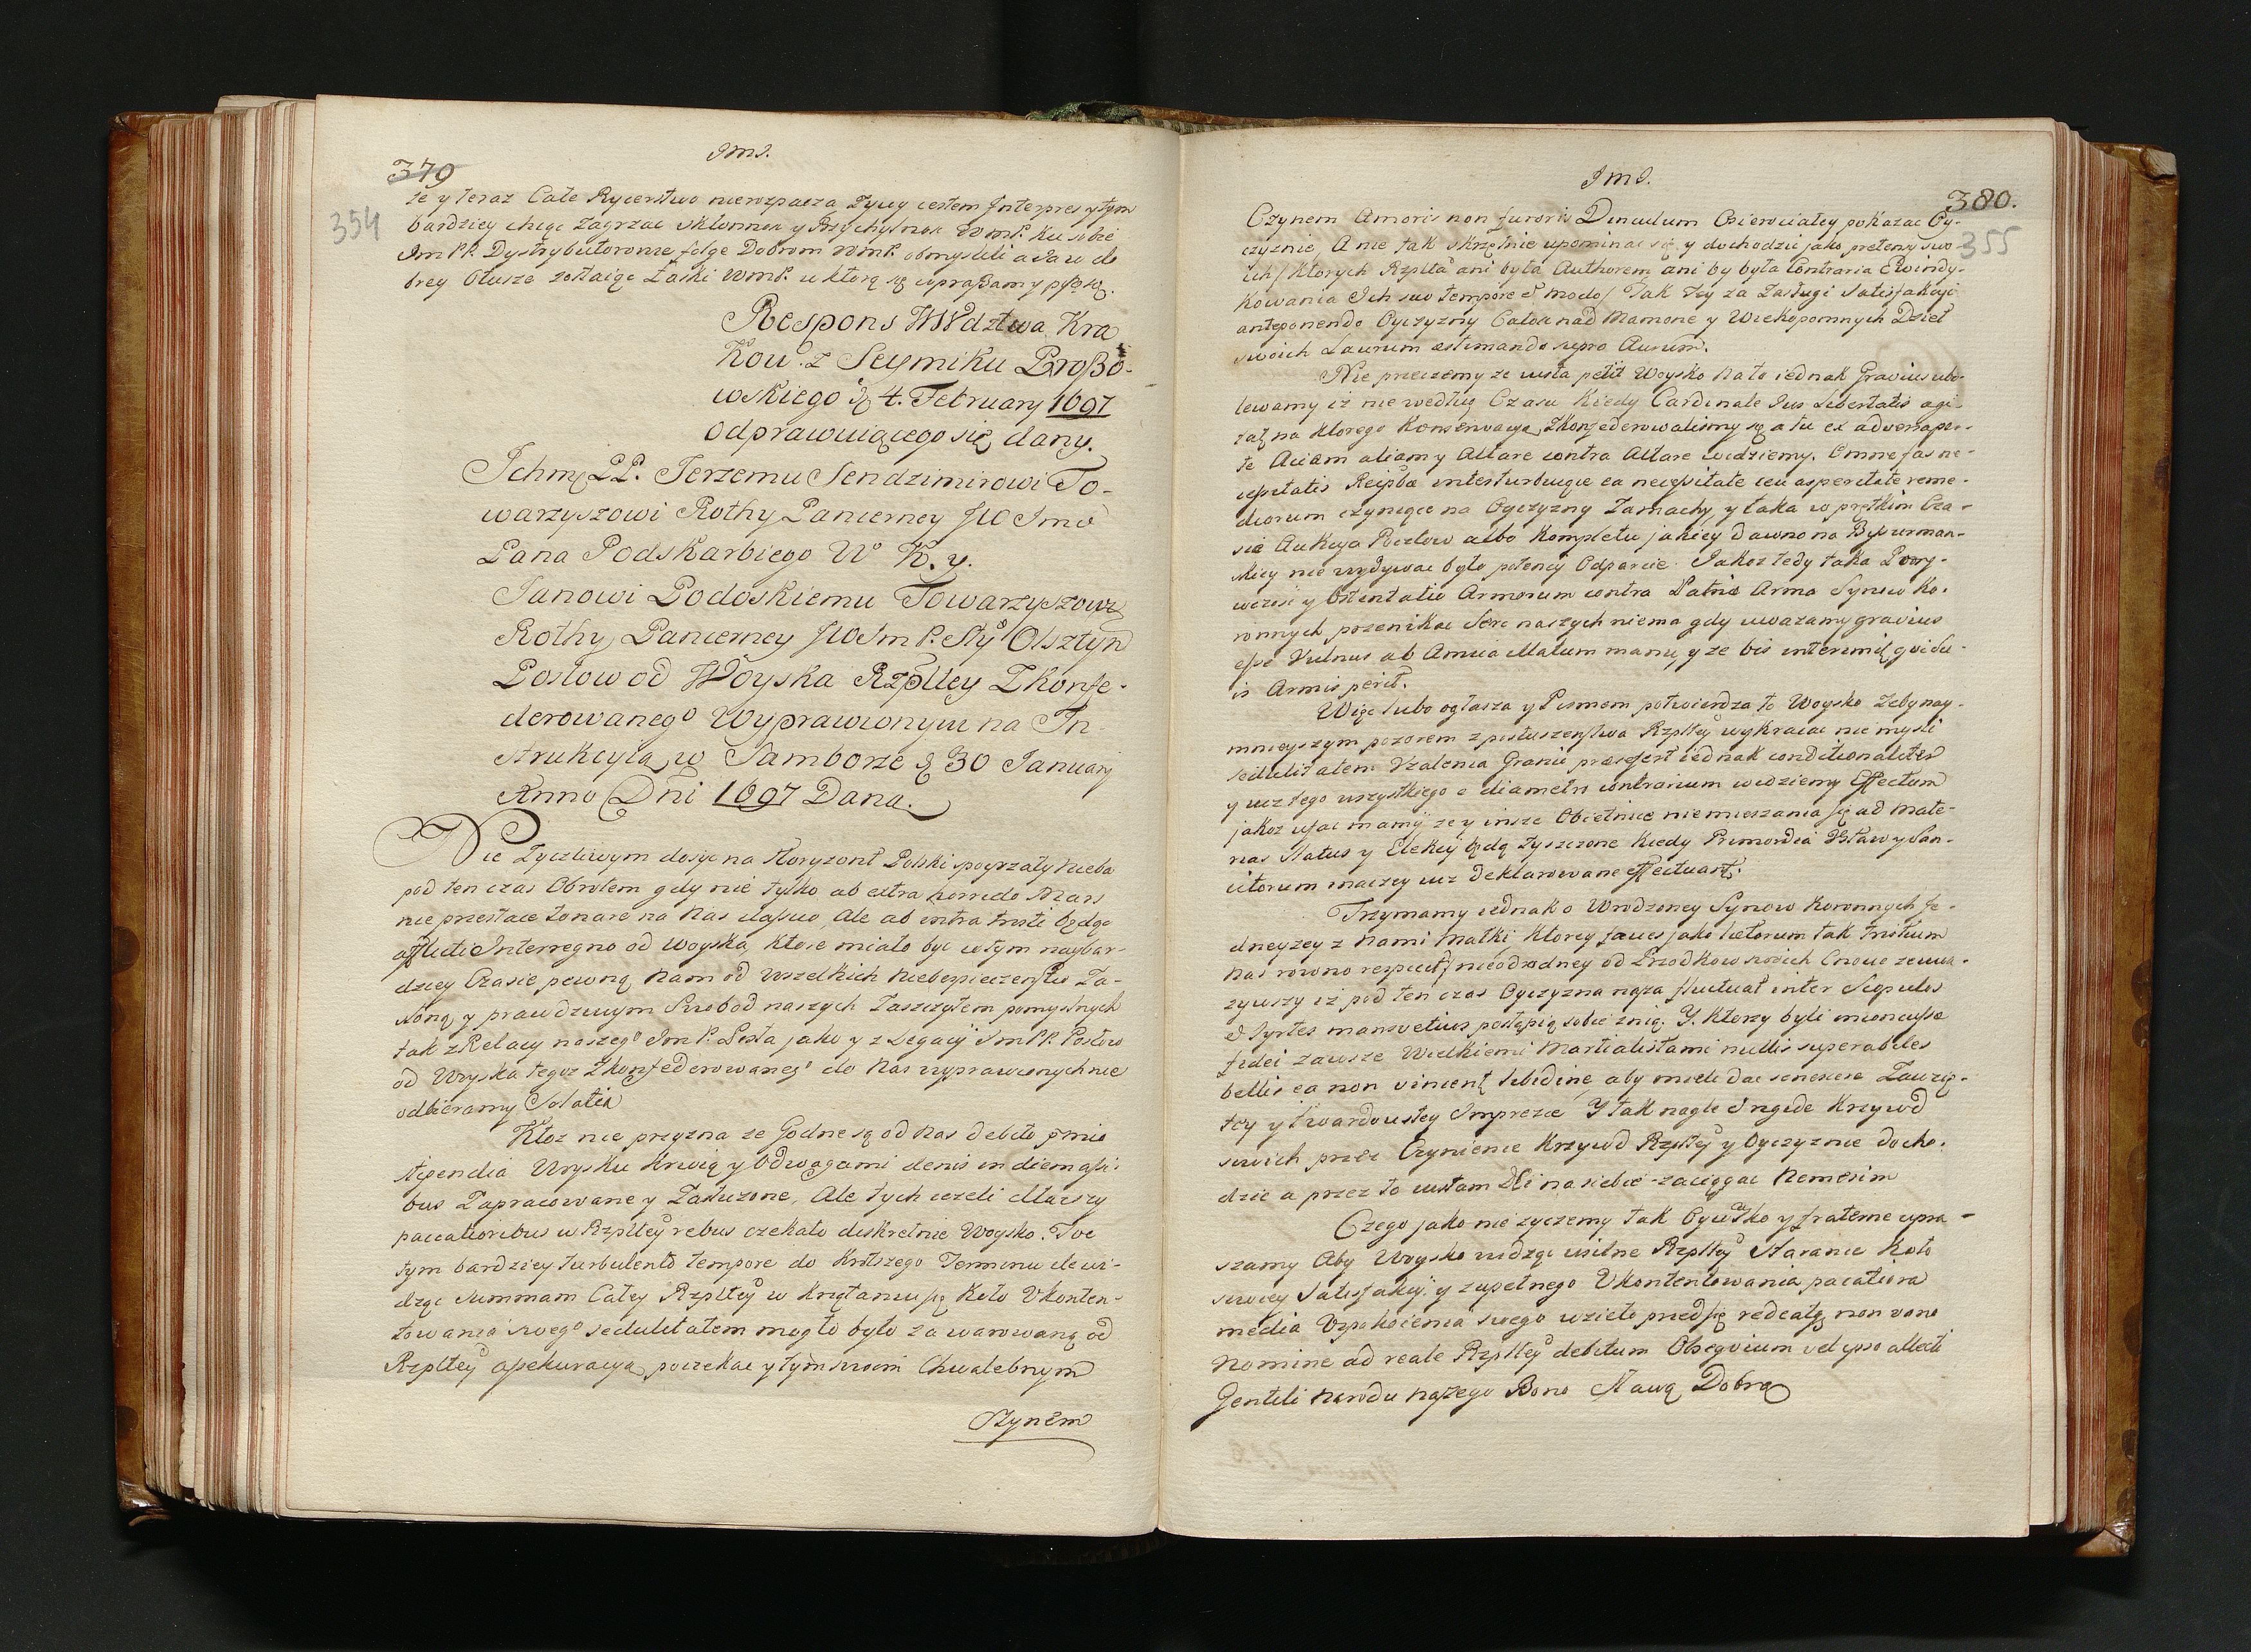 Jmś.
379
354
że y teraz Całe Rycerstwo nierozpacza Zyczy iestem Interpres y tym
bardziey chcąc zagrzac skłonnosc y Przychylnosc WmP. ku sobie
Im PP. Dystrybutorowie folge Dobrom WmP. obmyslili a Ja w do
brey Otusze zostaiąc Łaski WmP. w ktorą się upraszamy
Respons WWdztwa Kra
kow: z Seymiku Proszo-
wskiego d. 4. February 1697
odprawuiącego się dany.
Ichm PP. Jerzemu Sendzimirowi To-
warzyszowi Rothy Pancerney JW Jmo
Pana Podskarbiego W K. y.
Janowi Podoskiemu Towarzyszowi
Rothy Pancerney JWJm P. Sty Olsztyn
Posłow od Woyska Rzpltey Zkonfe-
derowanego Wyprawionym na In-
strukcyią w Samborze d 30 January
Anno Dni 1697 Dana.
Nie Zyczliwym dosyc na Horyzont Polski pogrzały Nieba
pod ten czas Obrotem gdy nie tylko ab extra horrido Mars
nie przestaie tonare na Nas classico, Ale ab intra tristi będąc
afflicti Interregno od woyska, ktore miało byc w tym naybar-
dziey Czasie pewną nam od wszelkich Niebezpieczenstw Za-
słoną y prawdziwym Swobod naszych Zaszczytem pomyslnych
tak z Relacy naszego Jm P. Posła jako y z Legacyi Jm PP. Posłow
od Woyska tegoz Zkonfederowanego do Nas wyprawionych nie
odbieramy Solatia
Ktoz nie przyzna ze Godne są od Nas debito pmio
stipendia Woysku krwią y Odwagami denis in diem assi-
bus Zapracowane y Zasłuzone, Ale tych iezeli Mazszy
pacatioribus w Rzpltey rebus czekało diskretnie Woysko. Toć
tym bardziey turbulento tempore do krotszego Terminu
dząc summam Całey Rzpltey w krzątaniu się koło Vkonten-
towania swego sedulitatem mogło było za warowaną od
Rzpltey assekuracyą poczekac y tym swoim Chwalebnym
Czynem
Jmś.
380.
355
Czynem Amoris non furoris Osierociałey pokazac Oy-
czyznie, A nie tak skrzętnie upominac się y dochodzic jako pretensy swo-
ich / ktorych Rzplta ani była Authorem ani by była Contraria Ewindy-
kowania Ich suo tempore & modo / Tak tez za Zasługi Satisfakcyi
anteponendo Oyczyzny Całosc nad Mamonę y Wiekopomnych Dzieł
swoich Laurum estimando supra Aurum.
Nie przeczemy ze iusta petit Woysko na to iednak Gravius ubo-
lewamy iż nie według Czasu kiedy Cardinale Ius Libertatis agi-
tat na ktorego Konserwacyą Zkonfederowalismy się a tu ex adverso aper-
te Aciam aliam y Altare contra Altare widziemy. Omne fas ne-
cessitatis Reipbcæ intesturbuiące ea necessitate ceu asperitate reme-
diorum czyniące na Oyczyznę Zamachy, y taka w prętkim Cza-
sie Aukcya Pocztow albo Kompletu jakiey dawno na Bisurman-
skiey nie widywac było potencij Odparcie. Jakoz tedy taka
y Ostentatio Armorum contra Patria Arma Synow Ko-
ronnych przenikac Serc naszych niema gdy uwazamy gravius
esse Vulnus ab Amica Malum manu, y ze bis interimit qvi Su-
is Armis perit.
Więc lubo ogłasza y Pismem potwierdza to Woysko Zeby nay-
mnieyszym pozorem z posłuszenstwa Rzpltey wykraczac nie mysli
sedulitatem Vzalenia Granic præsefert iednak conditionaliter
y iuz tego wszystkiego e diametro contrarium widziemy Effectum
jakoz ufac mamy ze y insze Obietnice niemieszania się ad mate-
rias Status y Elekcij będą zyszczone kiedy Primordia Vstaw y San-
citorum inaczey iuz deklarowane effectuant.
Trzymamy iednak o Wrodzoney Synow Koronnych Je-
dneyzey z Nami Matki, ktorey fauces jako lætorum tak tristium
Nas rowno respicit / nieodrodney od Przodkow swoich Cnocie ze uwa-
zywszy iz pod ten czas Oyczyzna nasza fluctuat inter Scopulos
& Syrtes mansvetius postąpią sobie znią. Y. ktorzy byli inconcussæ
fidei zawsze Wielkiemi Martialistami nullis superabiles
bellis ea non vincent libidine, aby mieli dac Zawzię-
tey y twardoustey Imprezie Y tak nagle krzywd
swoich przez Czynienie krzywd Rzpltey y Oyczyznie docho-
dzic a przez to iustam Dei na siebie zaciągac Nemesim
Czego jako nie zyczemy tak Oycowsko y fraterne upra-
szamy Aby Woysko widząc usilne Rzpltey staranie koło
swoiey Satisfakcyi y zupełnego Vkontentowania pacatiora
media Vspokoienia swego wzieło przed się redeatq non vono
Nomine ad reale Rzpltey debitum Obseqvium vel ipso allecti
Gentili narodu naszego Bono Sławą Dobrą